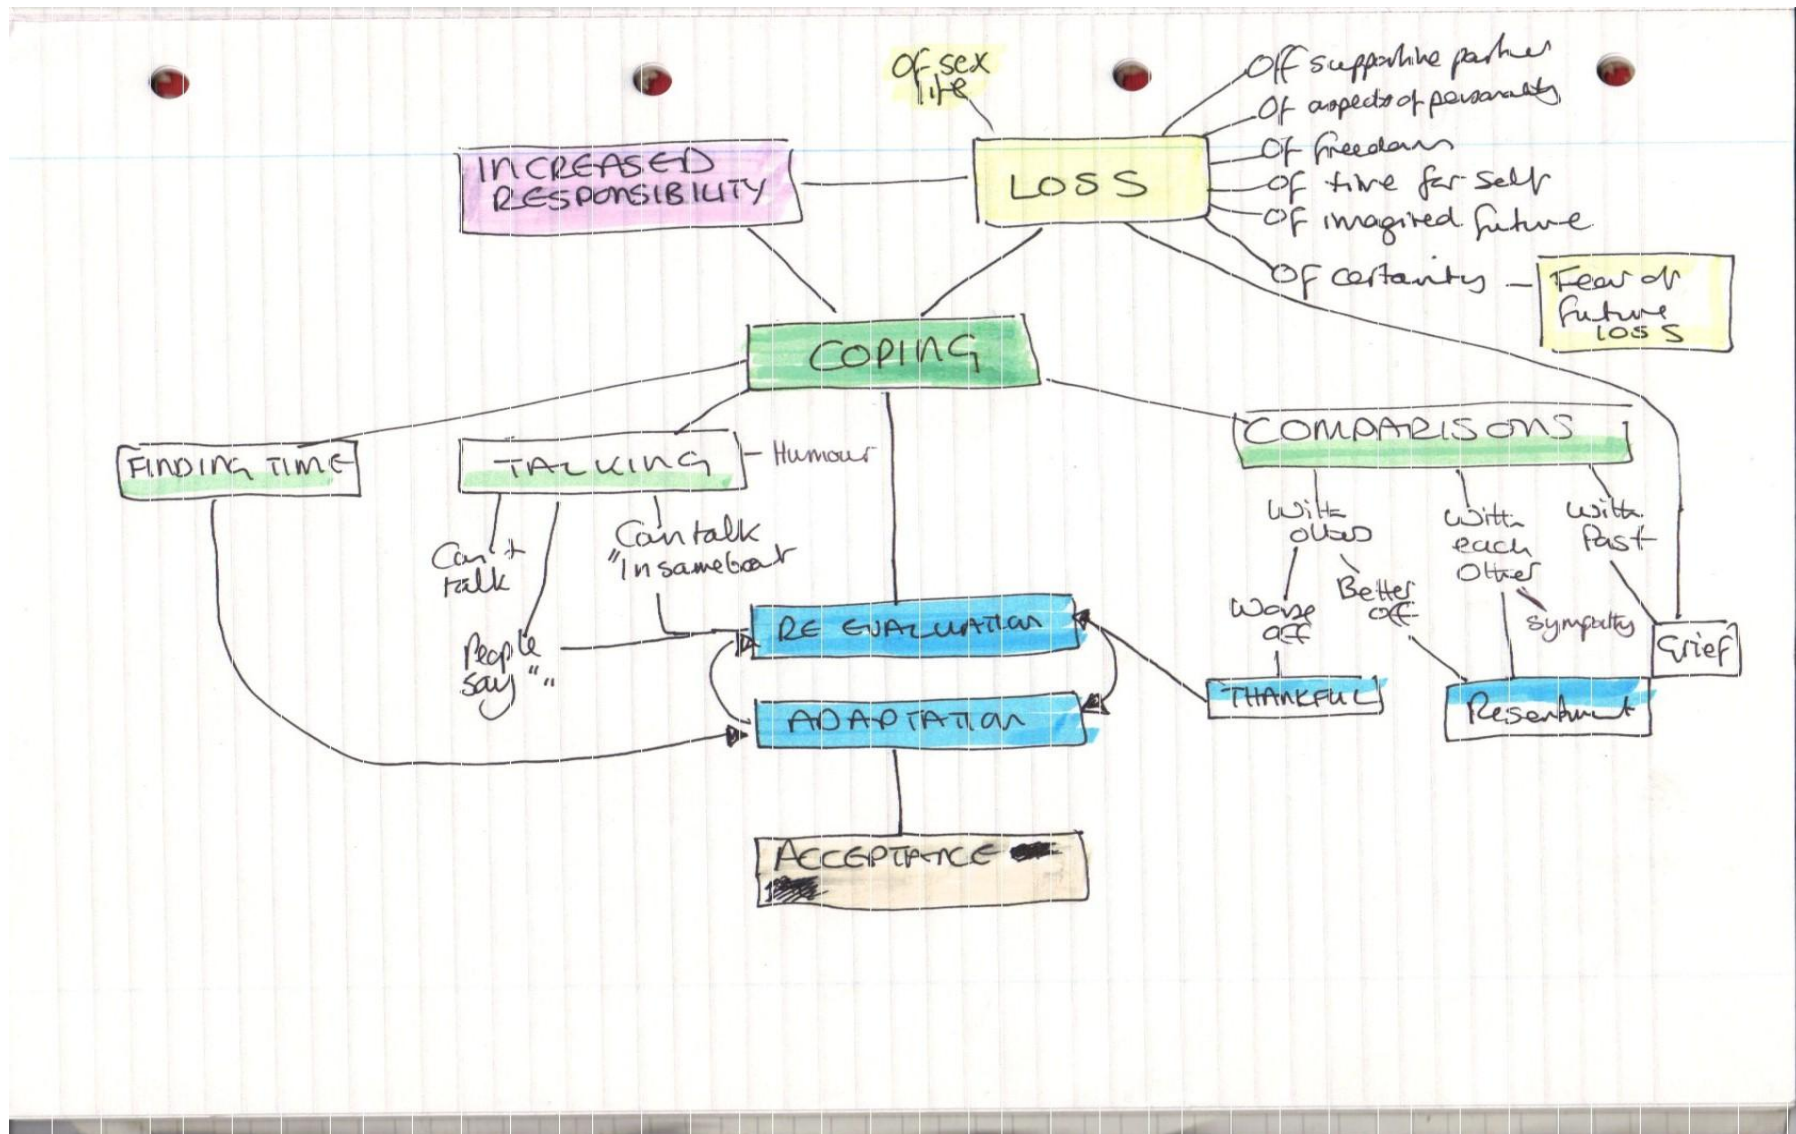 Of sex
life
Off supportive partner
Of aspects of personality
Of freedom
Of time for self
Of imagined future
Of certainity
Fear of
future
LOSS
INCREASED
RESPONSIBILITY
LOSS
COPING
FINDING TIME
TALKING
Humour
COMPARISONS
Can't
talk
Can talk
"In same boat
People
say " "
With
others
With
each
other
With
Past
Worse
off
Better
off
Sympathy
Grief
RE EVALUATION
ADAPTATION
THANKFUL
Resentment
ACCEPTANCE